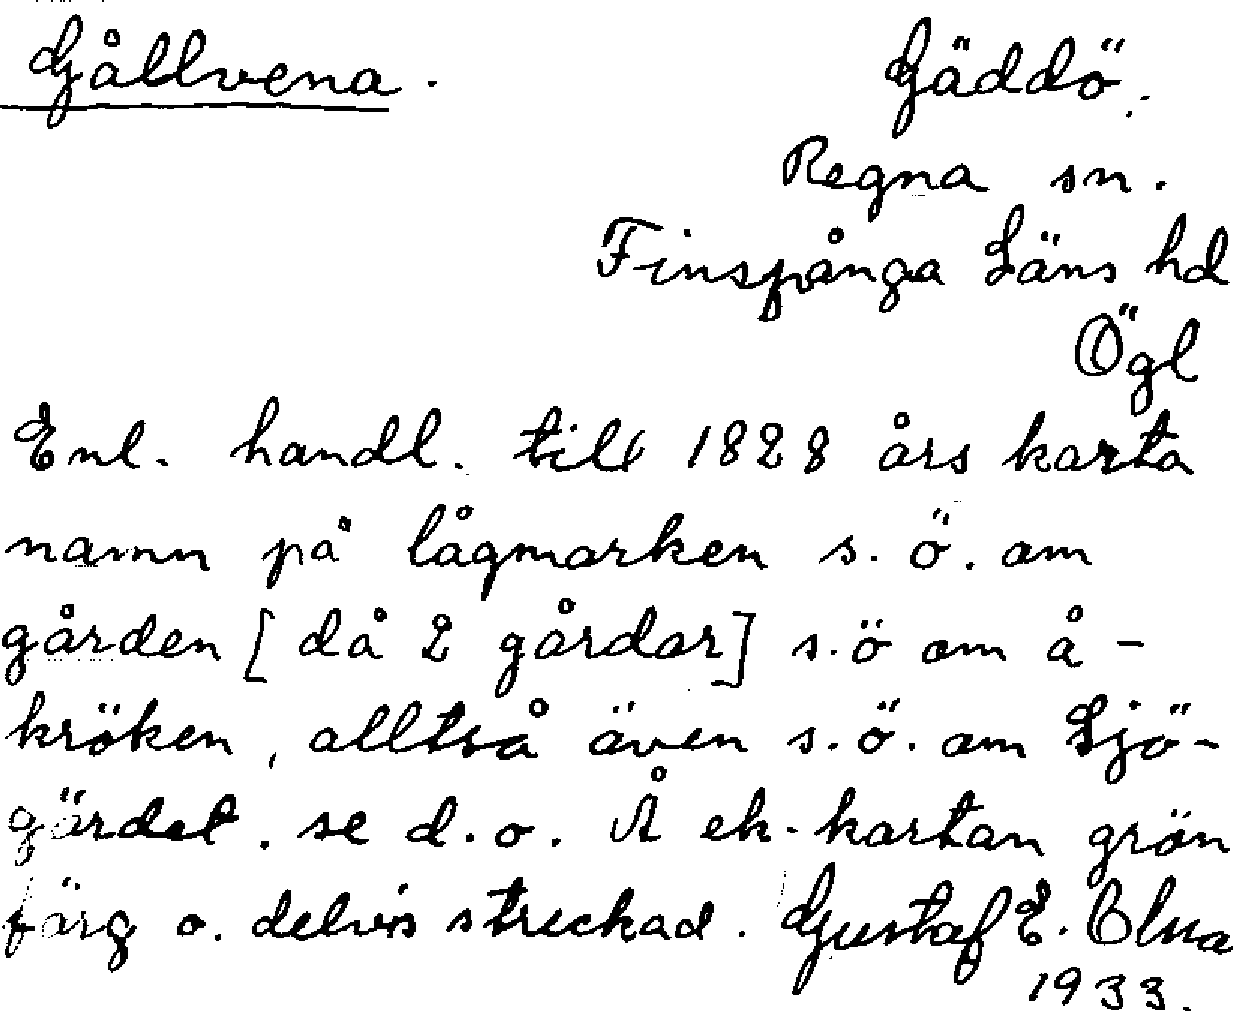 Gållvena.
Gäddö.
Regna sn.
Finspånga Läns hd
Ögl
Enl. handl. till 1828 års karta
namn på lågmarken s.ö. om
gården [då 2 gårdar] s.ö om å-
kröken, alltså även s.ö. om Sjö-
gärdet. se d.o. Å ek-kartan grön
färg o. delvis streckad. Gustaf E. Elua
1933.